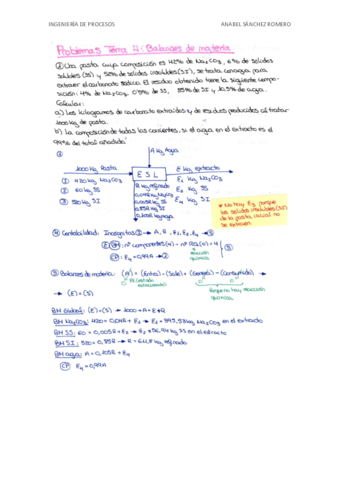 INGENIERÍA DE PROCESOS
ANABEL SÁNCHEZ ROMERO
Problemas Tema 4: Balances de materia
① Una pasta cuya composición es 42% de Na₂CO₃, 6% de sólidos
solubles (SS) y 52% de sólidos insolubles (SI), se trata con agua para
extraer el carbonato sódico. El residuo obtenido tiene la siguiente compo-
sición: 4% de Na₂CO₃, 0'5% de SS, 85% de SI y 10,5% de agua.
Calcular:
a) Los kilogramos de carbonato extraídos y de residuos producidos al tratar
1000 kg de pasta.
b) La composición de todas las corrientes, si el agua en el extracto es el
99% del total añadido.
A kg Agua
1000 kg Pasta
E kg extracto
① 420 kg Na₂CO₃
② 60 kg SS
③ 520 kg SI
E S L
E₁ kg Na₂CO₃
E₂ kg SS
E₃ kg SI
E₄ kg
R kg refinado
0,04R kg Na₂CO₃
0,005R kg SS
0,85R kg SI
0,105R kg agua
* No hay E₃ porque
los sólidos insolubles (SI)
de la pasta inicial no
se extraen
④ Contabilidad: Incógnitas ⑤ → A, R, E₁, E₂, E₄
BM: nº componentes (4) - nº RQ (0) = 4
reacción química
CP: E₄ = 0,99A
⑤ Balances de materia: (A) = (Entra) - (Sale) + (Genera) - (Consumido) →
→ (E) = (S)
porque no hay reacción
química.
BM Global: (E) = (S) → 1000 + A = E + R
BM Na₂CO₃: 420 = 0,04R + E₁ → E₁ = 395,53 kg Na₂CO₃ en el extracto
BM SS: 60 = 0,005R + E₂ → E₂ = 56,94 kg SS en el extracto
BM SI: 520 = 0,85R → R = 611,8 kg refinado
BM agua: A = 0,105R + E₄
CP E₄ = 0,99A